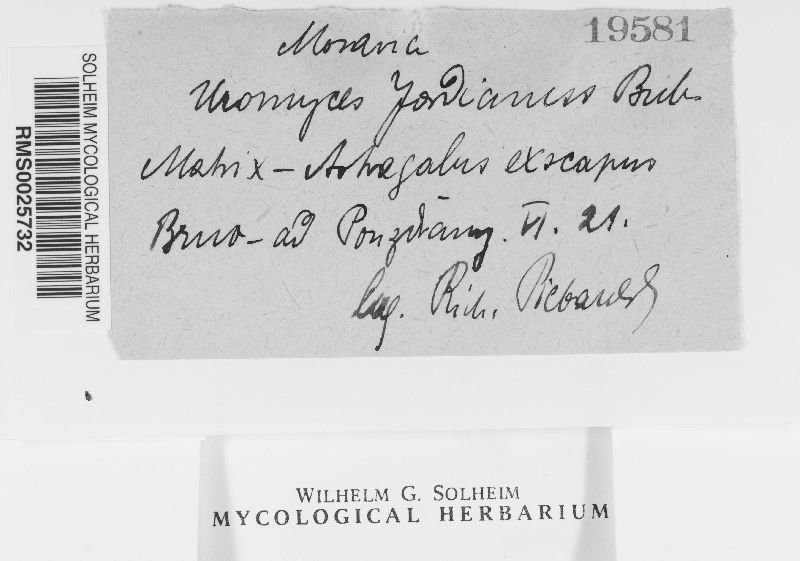 19581
Moravia
Uromyces Jordianus Bub.
Matrix - Astragalus exscapus
Brno - ad Pouzdřany. VI. 21.
Leg. Rich. Picbauer
SOLHEIM MYCOLOGICAL HERBARIUM
RMS0025732
WILHELM G. SOLHEIM
MYCOLOGICAL HERBARIUM